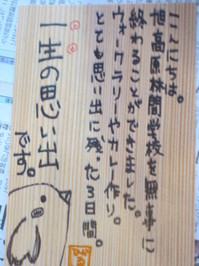 こんにちは。
旭高原林間学校を無事に
終わることができました。
ウォークラリーやカレー作り。
とても思い出に残った3日間。
一生の思い出
です。